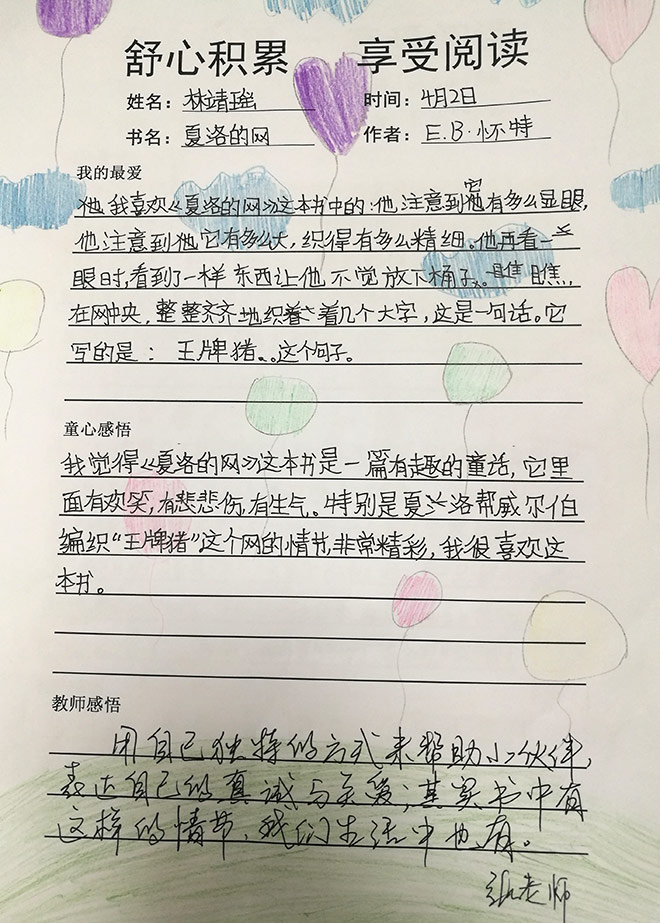 舒心积累 享受阅读
姓名：林靖瑶 时间：4月2日
书名：夏洛的网 作者：E.B.怀特
我的最爱
我喜欢《夏洛的网》这本书中的：他注意到它有多么显眼，
他注意到它有多么大，织得有多么精细。他再看一
眼时，看到了一样东西让他不觉放下桶子。瞧，
在网中央，整整齐齐地织着几个大字，这是一句话。它
写的是：王牌猪。这个句子。
童心感悟
我觉得《夏洛的网》这本书是一篇有趣的童话，它里
面有欢笑，有悲悲伤，有生气。特别是夏洛帮威尔伯
编织“王牌猪”这个网的情节，非常精彩，我很喜欢这
本书。
教师感悟
用自己独特的方式来帮助小伙伴，
表达自己的真诚与关爱；其实书中有
这样的情节，我们生活中也有。
张老师